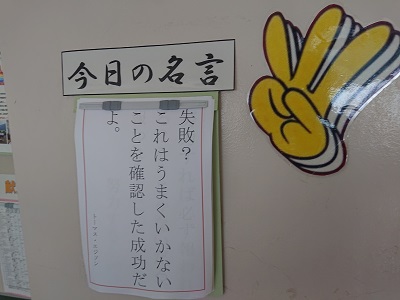 今日の名言
失敗?
これはうまくいかない
ことを確認した成功だ
よ。
トーマス・エジソン